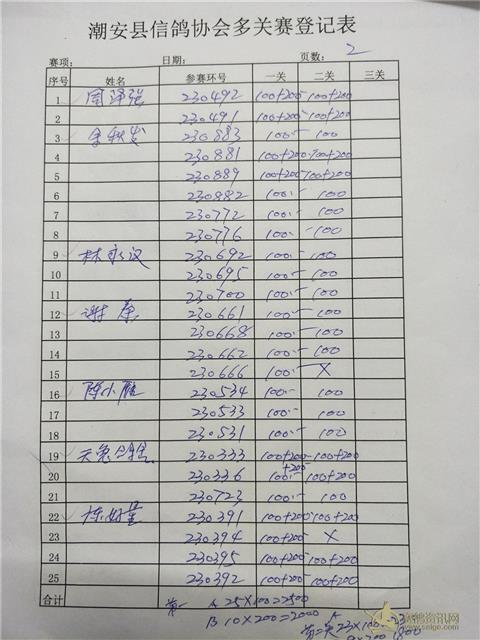 潮安县信鸽协会多关赛登记表
赛项： 日期： 页数： 2
序号 姓名 参赛环号 一关 二关 三关
1 周泽强 230492 100+200 100+200
2 230491 100+200 100+200
3 余秋发 230883 100 100
4 230881 100+200 100+200
5 230889 100+200 100+200
6 230882 100 100
7 230772 100 100
8 230776 100 100
9 林永汉 230692 100 100
10 230695 100 100
11 230700 100 100
12 谢 230661 100 100
13 230668 100 100
14 230662 100 100
15 230666 100 X
16 陈小雁 230534 100 100
17 230533 100 100
18 230531 100 100
19 230333 100+200 100+200
20 230336 100+200 100+200
21 230723 100 100
22 230391 100+200 100+200
23 230394 100+200 X
24 230395 100+200 100+200
25 230392 100+200 100+200
合计 第一 A 25X100=2500
B 10X200=2000
第二关 A 23X100=23